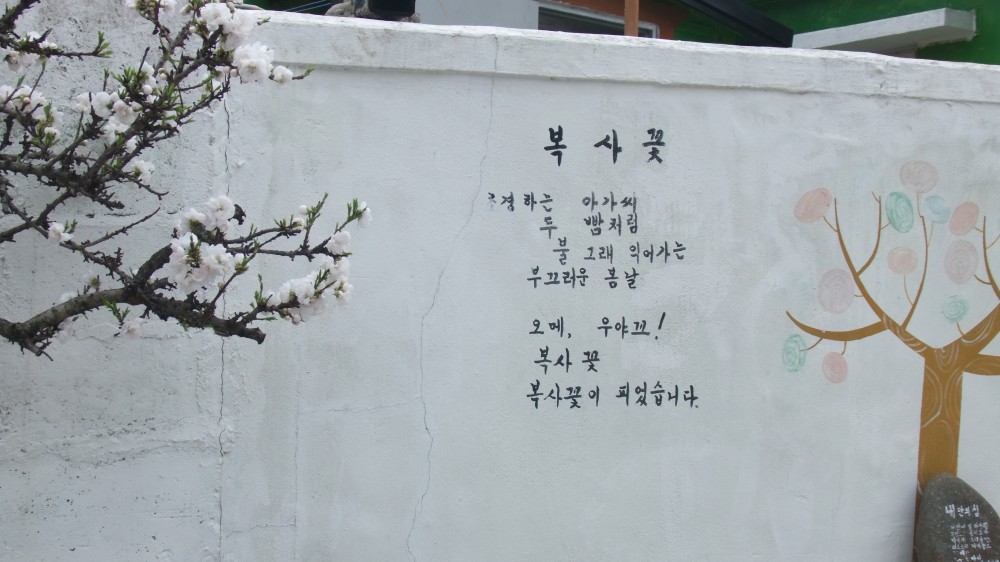 복사꽃
하는 아가씨
두 뺨처럼
불 그래 익어가는
부끄러운 봄날
오메, 우야꼬!
복사꽃
복사꽃이 피었습니다.